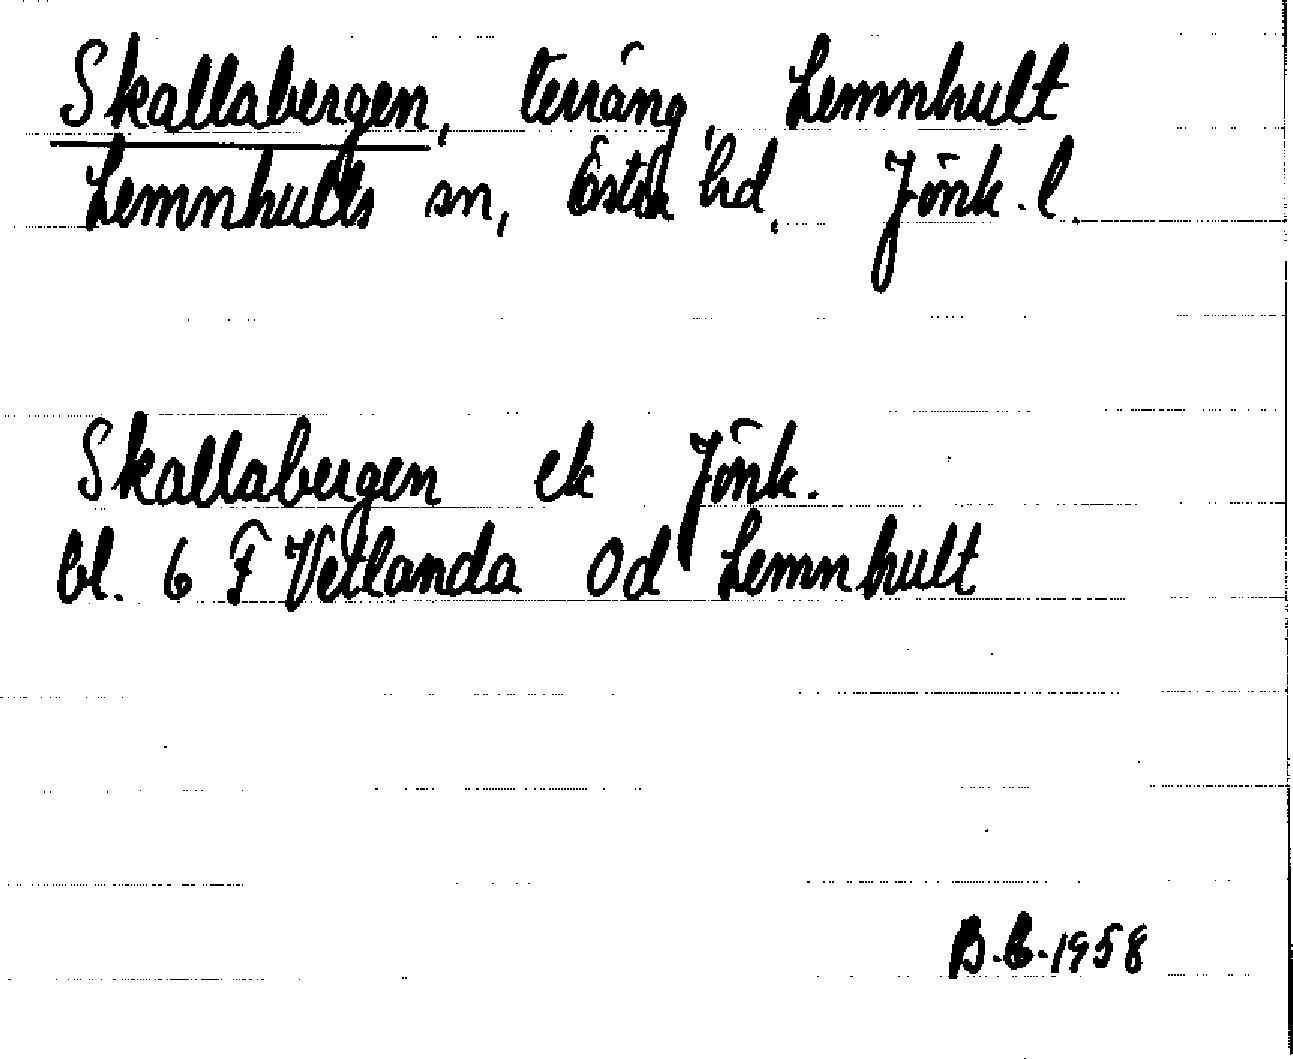 Skallabergen, terräng, Lemnhult
Lemnhults sn, Östra hd, Jönk. l.
Skallabergen ek Jönk.
bl. 6 F Vetlanda Od Lemnhult
B.E. 1958